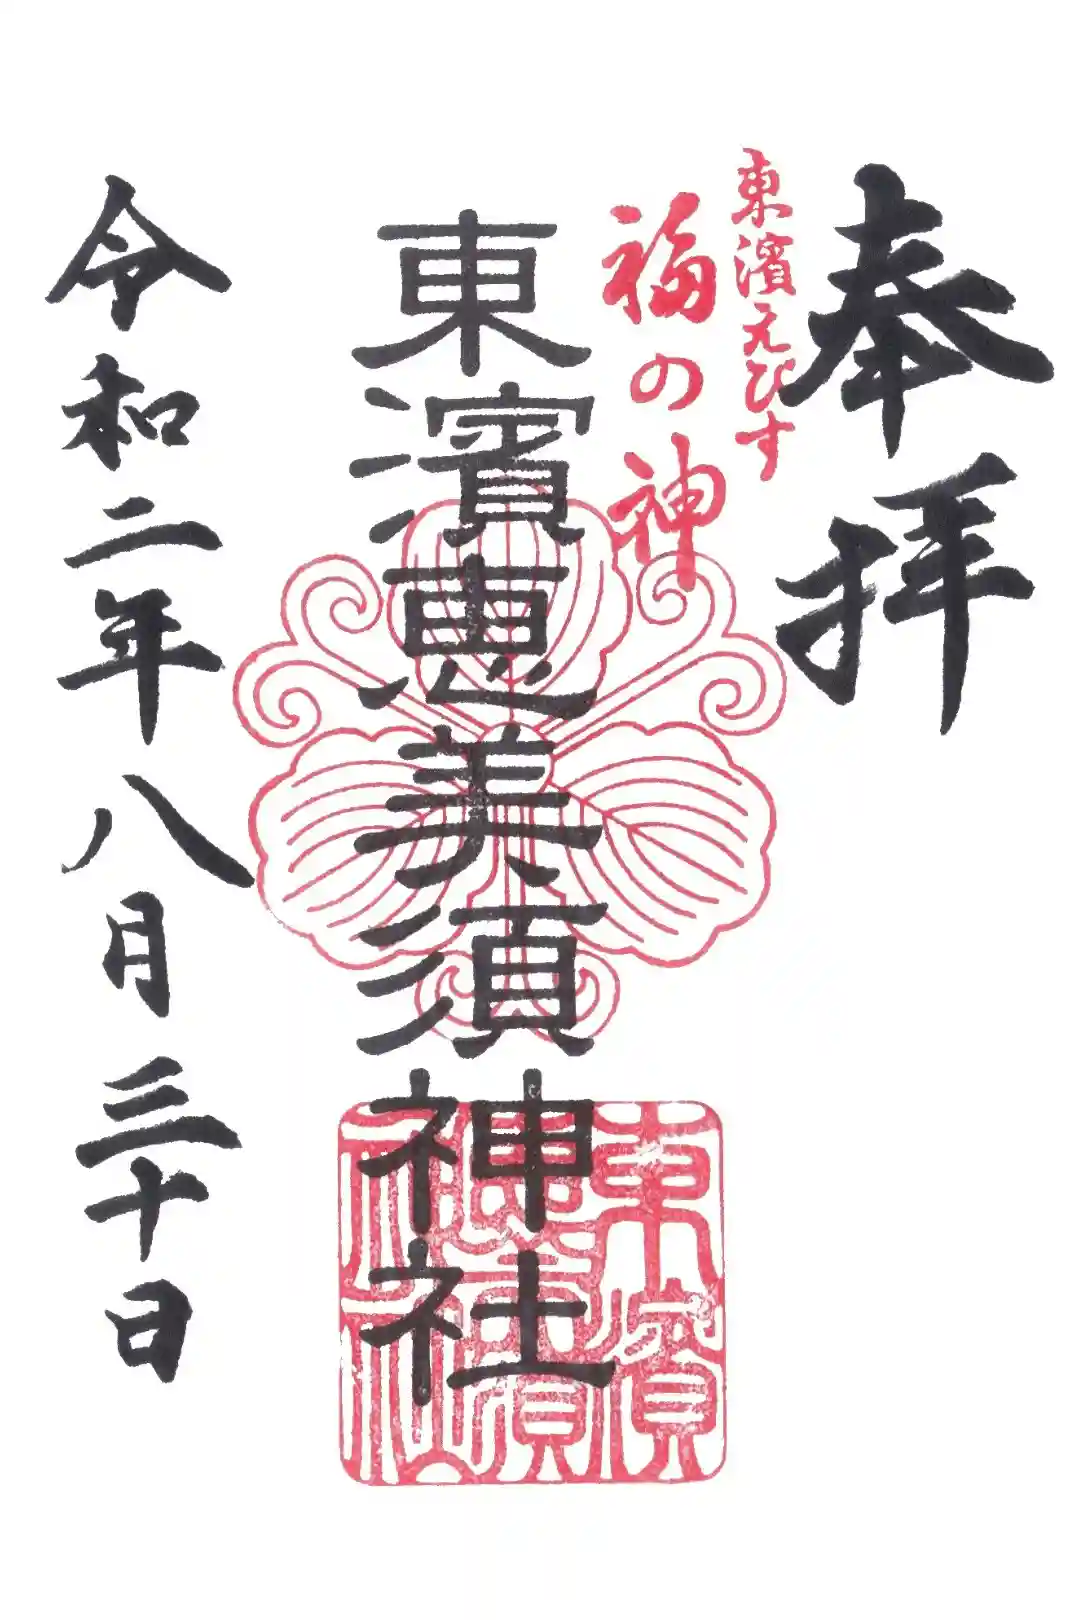 奉拝
東濱えびす
福の神
東濱恵美須神社
東濱
恵美須
神社
令和二年八月三十日